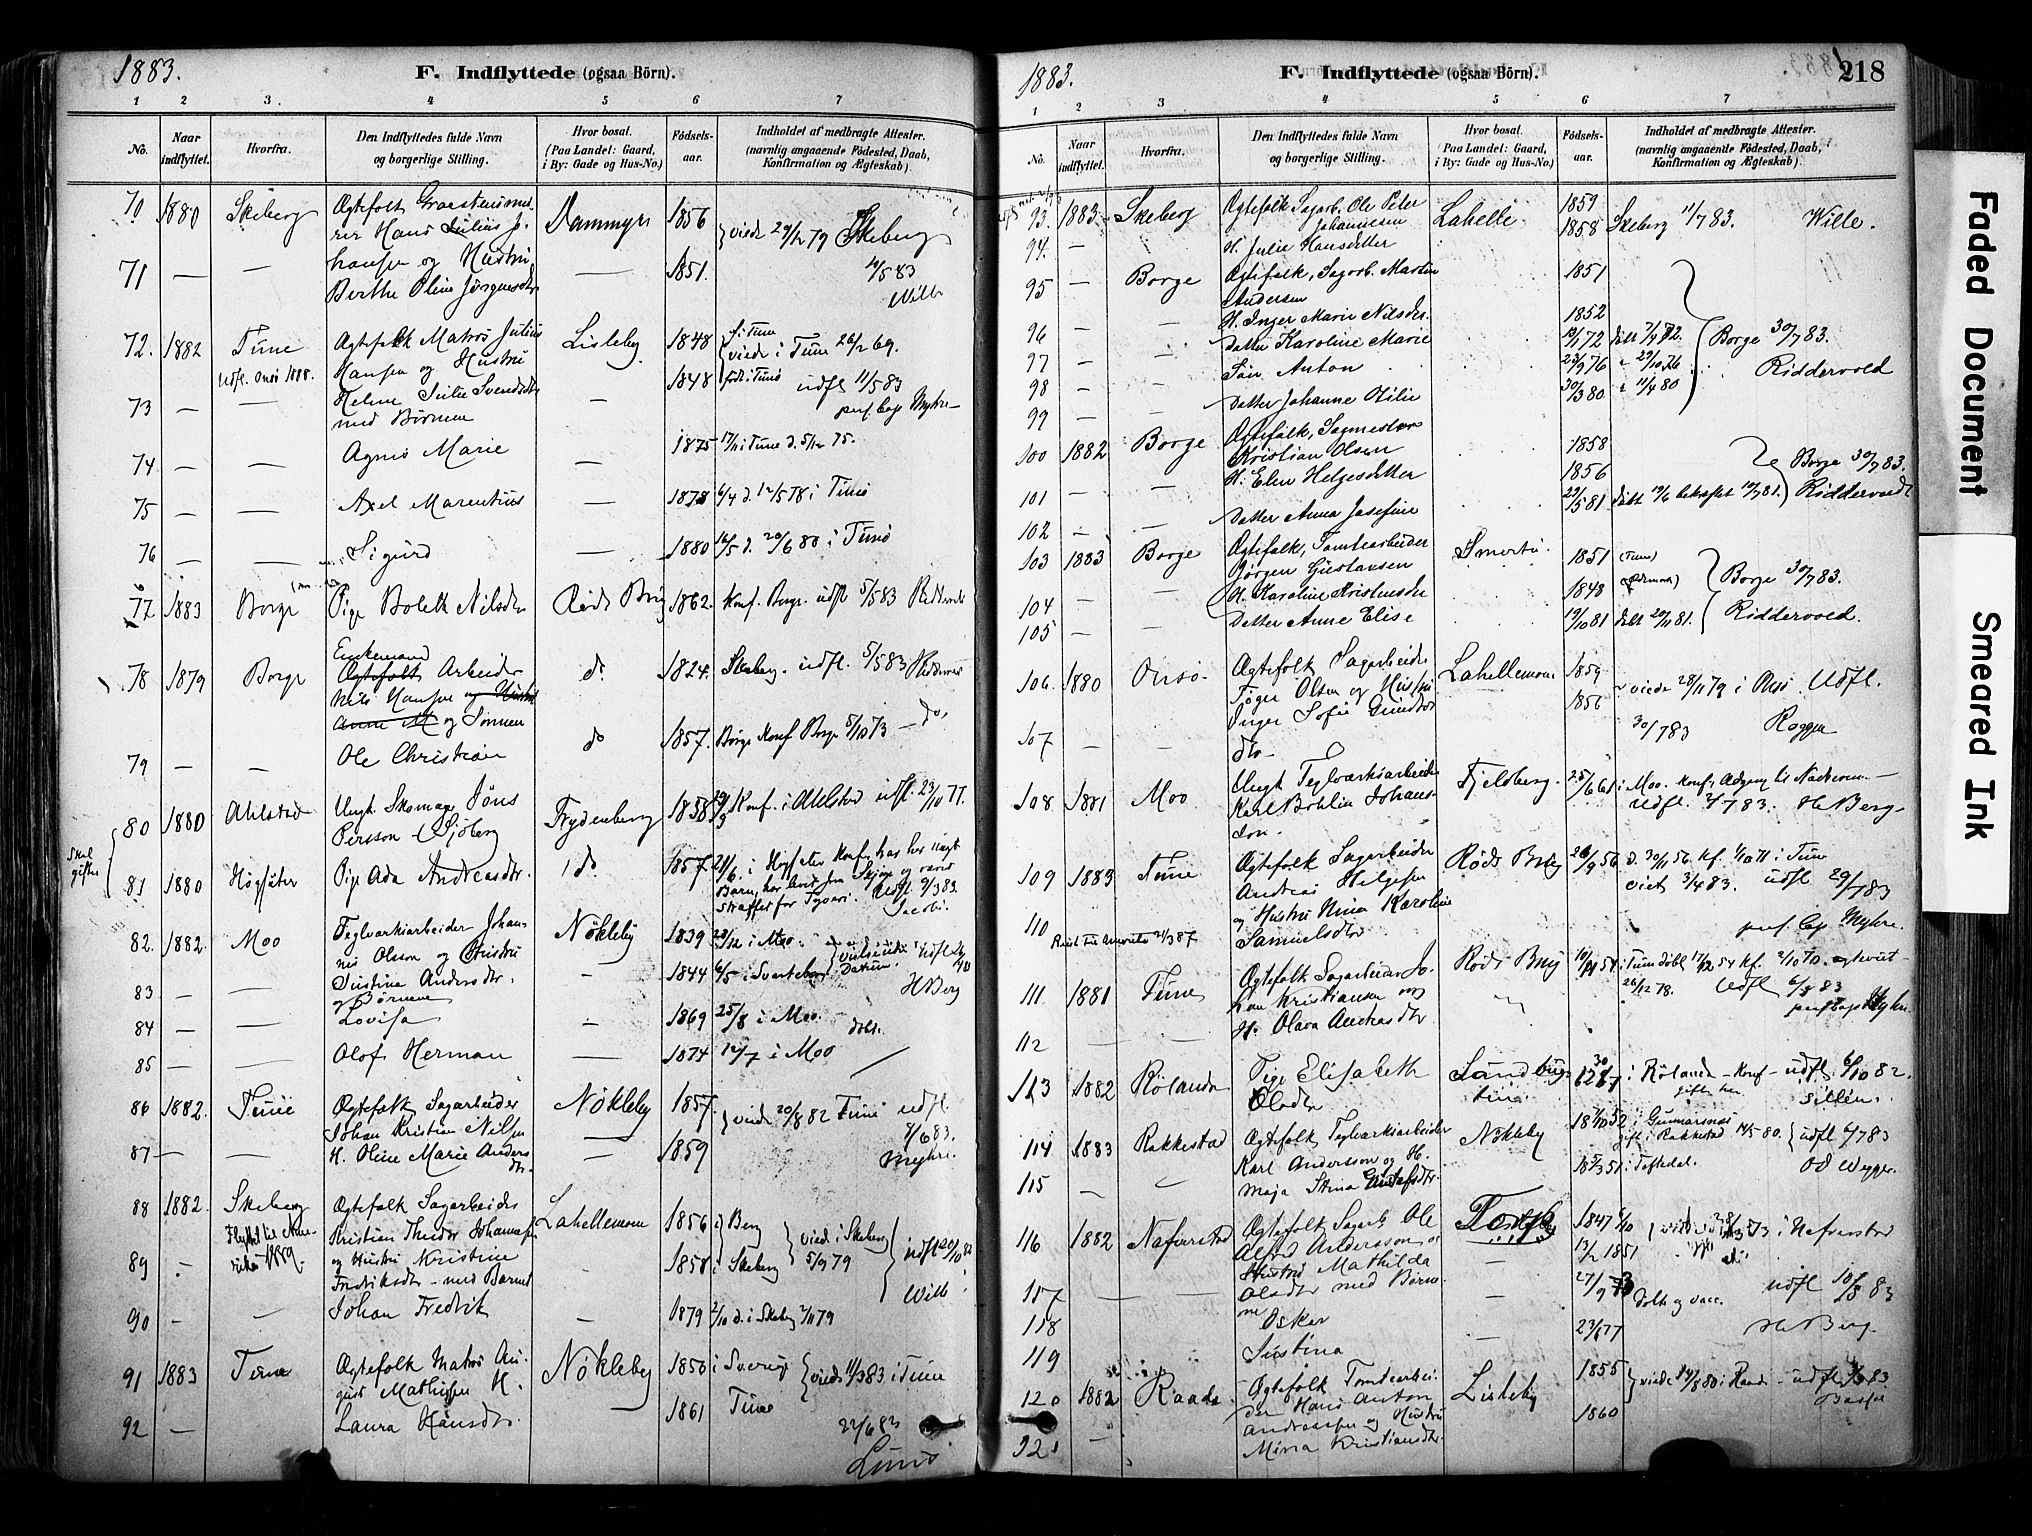 1883.
F. Indflyttede (ogsaa Börn).
1 2 3. 4 5 6 7
No. Naar indflyttet. Hvorfra. Den Indflyttedes fulde Navn og borgerlige Stilling. Hvor bosat. (Paa Landet: Gaard, i By: Gade og Hus-No.) Födsels-aar. Indholdet af medbragte Attester. (navnlig angaaende Födested, Daab, Konfirmation og Ægteskab).
70 1880 Skeberg Ægtefolk
rer Hans Julius Jo- Dammyr 1856 viede 29/12 79 Skeberg
hansen og Hustru
71 — — Berthe Oline Jörgensdtr — 1851. 4/5 83
Wille
72. 1882 Tune Ægtefolk Matros Julius Lisleby 1848 f. i Tune viede i Tune 26/12 69.
Udfl. Onsö 1888. Hansen og Hustru 1848 född i Tune udfl 11/5 83
73 — — Helene Julie Svendsdtr — pers. Cap Myhre
med Börnene
74 — — Agnes Marie — 1875 17/11 i Tune d. 5/12 75.
75 — — Axel Marentius — 1878 6/4 d. 12/5 78 i Tune
76 — — Sigurd — 1880 16/5 d. 20/6 80 i Tune
77 1883 Borge Pige Bolette Nilsdtr Röds Brug 1862. Konf. Borge. udfl 5/5 83 Riddervold
Enkemand
78 1879 Borge Ægtefolk Arbeider do 1824. Skeberg. udfl. 5/5 83 Riddervold
Nils Hansen og Hustru
Anne M og Sönnen
79 — — Ole Christian do 1857. Borge Konf Borge 5/10 73 — do.
80 1880 Ahlstad Ungk. Skomager Jöns Frydenberg 1858 Konf. i Ahlstad udfl. 23/10 77.
Persson Sjöberg
Skal giftes
81 1880 Högsäter Pige Ada Andreasdtr. do 1857. 21/6. i Högsäter Konf., har her uægt
Barn, har levet fra og været
straffet for Tyveri. Udfl. 9/3 83. Jacobi.
82. 1882. Moo Teglværksarbeider Johan- Nökleby 1839 28/12 i Moo.
nes Olsson og Hustru
83 — — Justina Andersdtr. — 1844 6/5 i Svarteborg Datum. H Berg
og Börnene
84 — — Lovisa — 1869 25/8 i Moo
85 — — Olof Herman — 1874 12/7 i Moo
86 1882. Tune Ægtefolk Sagarbeider Nökleby 1857. viede 20/8 82 Tune udfl
Johan Kristian Nilsen 8/6 83.
87 — — H. Oline Marie Anders- — 1859 Myhre.
dtr.
88 1882. Skeberg Ægtefolk Sagarbeider
Flyttet til Ame- Kristian Theodor Johannesen Lahellemoen 1856 i Berg viede i Skeberg
89 - rika 1889. og Hustru Kristine - 1858 i Skeberg 5/9 79 udfl 20/10 82
Fredriksdtr - med Barnet Wille
90 — — Johan Fredrik 1879 2/10 d. i Skeberg 2/11 79
91 1883 Tune Ægtefolk Matros Au- Nökleby 1858 i Sverige viede 11/3 83 i Tune
gust Mathisen H.
92 — Laura Hansdtr. 1861 Tune 22/6 83
Lund
1883. F. Indflyttede (ogsaa Börn). 218
1 2 3 4 5 6 7
No. Naar indflyttet. Hvorfra. Den Indflyttedes fulde Navn og borgerlige Stilling. Hvor bosat. (Paa Landet: Gaard, i By: Gade og Hus-No.) Födsels-aar. Indholdet af medbragte Attester. (navnlig angaaende Födested, Daab, Konfirmation og Ægteskab).
93. 1883 Skeberg Ægtefolk Sagarb. Ole Peter Lahelle 1859
Johannesen 1858 Skeberg 11/7 83. Wille.
94. — H. Julie Hansdatter
95 — Borge Ægtefolk, Sagarb. Martin 1851
Andersen
96 — — H. Inger Marie Nilsdtr. 1852
97 — — Datter Karoline Marie Borge 30/7 83.
98 Sön Anton 23/9 76 29/10 76 Riddervold
99 Datter Johanne Otilie 30/3 80 11/4 80
100 1882 Borge Ægtefolk, Sagmester 1858
Kristian Olsen
101 — — H. Elen Helgesdatter 1856 Borge 30/7 83.
102 — — Datter Anna Josefine 29/5 81 döbt 19/6 bekræftet 10/7 81. Riddervold
103 1883 Borge Ægtefolk, Tomtearbeider 1851 (Tune)
Jörgen Gustavsen
104 — — H. Karoline Kristensdtr 1848 Borge 30/7 83.
105 — — Datter Anne Elise 19/10 81 döbt 20/11 81. Riddervold.
106. 1880 Onsö Ægtefolk Sagarbeider Lahellemoen 1859
Jöger Olsen og Hustru 1856 viede 28/11 79 i Onsö. Udfl.
107 — — Inger Sofie 30/7 83 Rogge
dtr.
108 1881 Moo Ungk Teglværksarbeider Fjeldberg. 25/6 61 i Moo. Konf. Adgang til Nadveren. —
Karl Bohlin Johans- Udfl 7/7 83. H Berg.
son.
109 1883 Tune Ægtefolk Sagarbeider Röds Brug 26/9 56 d. 30/11 56 kf. 1/10 71 i Tune
Andreas Helgesen viet 3/4 83. udfl 29/7 83
110 og Hustru Nina Karoline pers. Cap Myhre.
Reist til Amerika 21/3 87 Samuelsdtr
111. 1881 Tune Ægtefolk Sagarbeider Jo- Röds Brug i Tune döbt 17/12 54 kf. 2/10 70. ægteviet
han Kristiansen og 26/12 78. Udfl 6/8 83
112 — H. Olava Andreasdtr pers Cap Myhre
113 1882 Rölanda Pige Elisabeth i Rölanda - Konf - udfl 6/10 82.
Olsdtr giftes her Sillén.
114 1883 Rakkestad Ægtefolk Teglværksarbeider Nökleby i Gunnarsnäs
Karl Andersson og H. gift i Rakkestad 14/5 80. udfl 6/7 83
115 — — Maja Stina Gustafsdtr. i Töftedal. O D Wegge.
116 1882 Nafverstad Ægtefolk Sagarb. Ole Torp 1847 i Nafverstad
Alfred Andersson og 13/2 1851
117 — — Hustru Mathilda 27/9 73 udfl 10/8 83
Olsdtr med Börne- döbt og vacc.
118 ne Oskar — 23/1 77 H Berg.
119 Justina —
120 1882 Raade Ægtefolk Tomtearbei- Lisleby 1855 viede i Raade - udfl
der Hans Anton
121 — Andreassen og Hustru 1860
Mina Kristiansdtr.
Faded Document
Smeared Ink